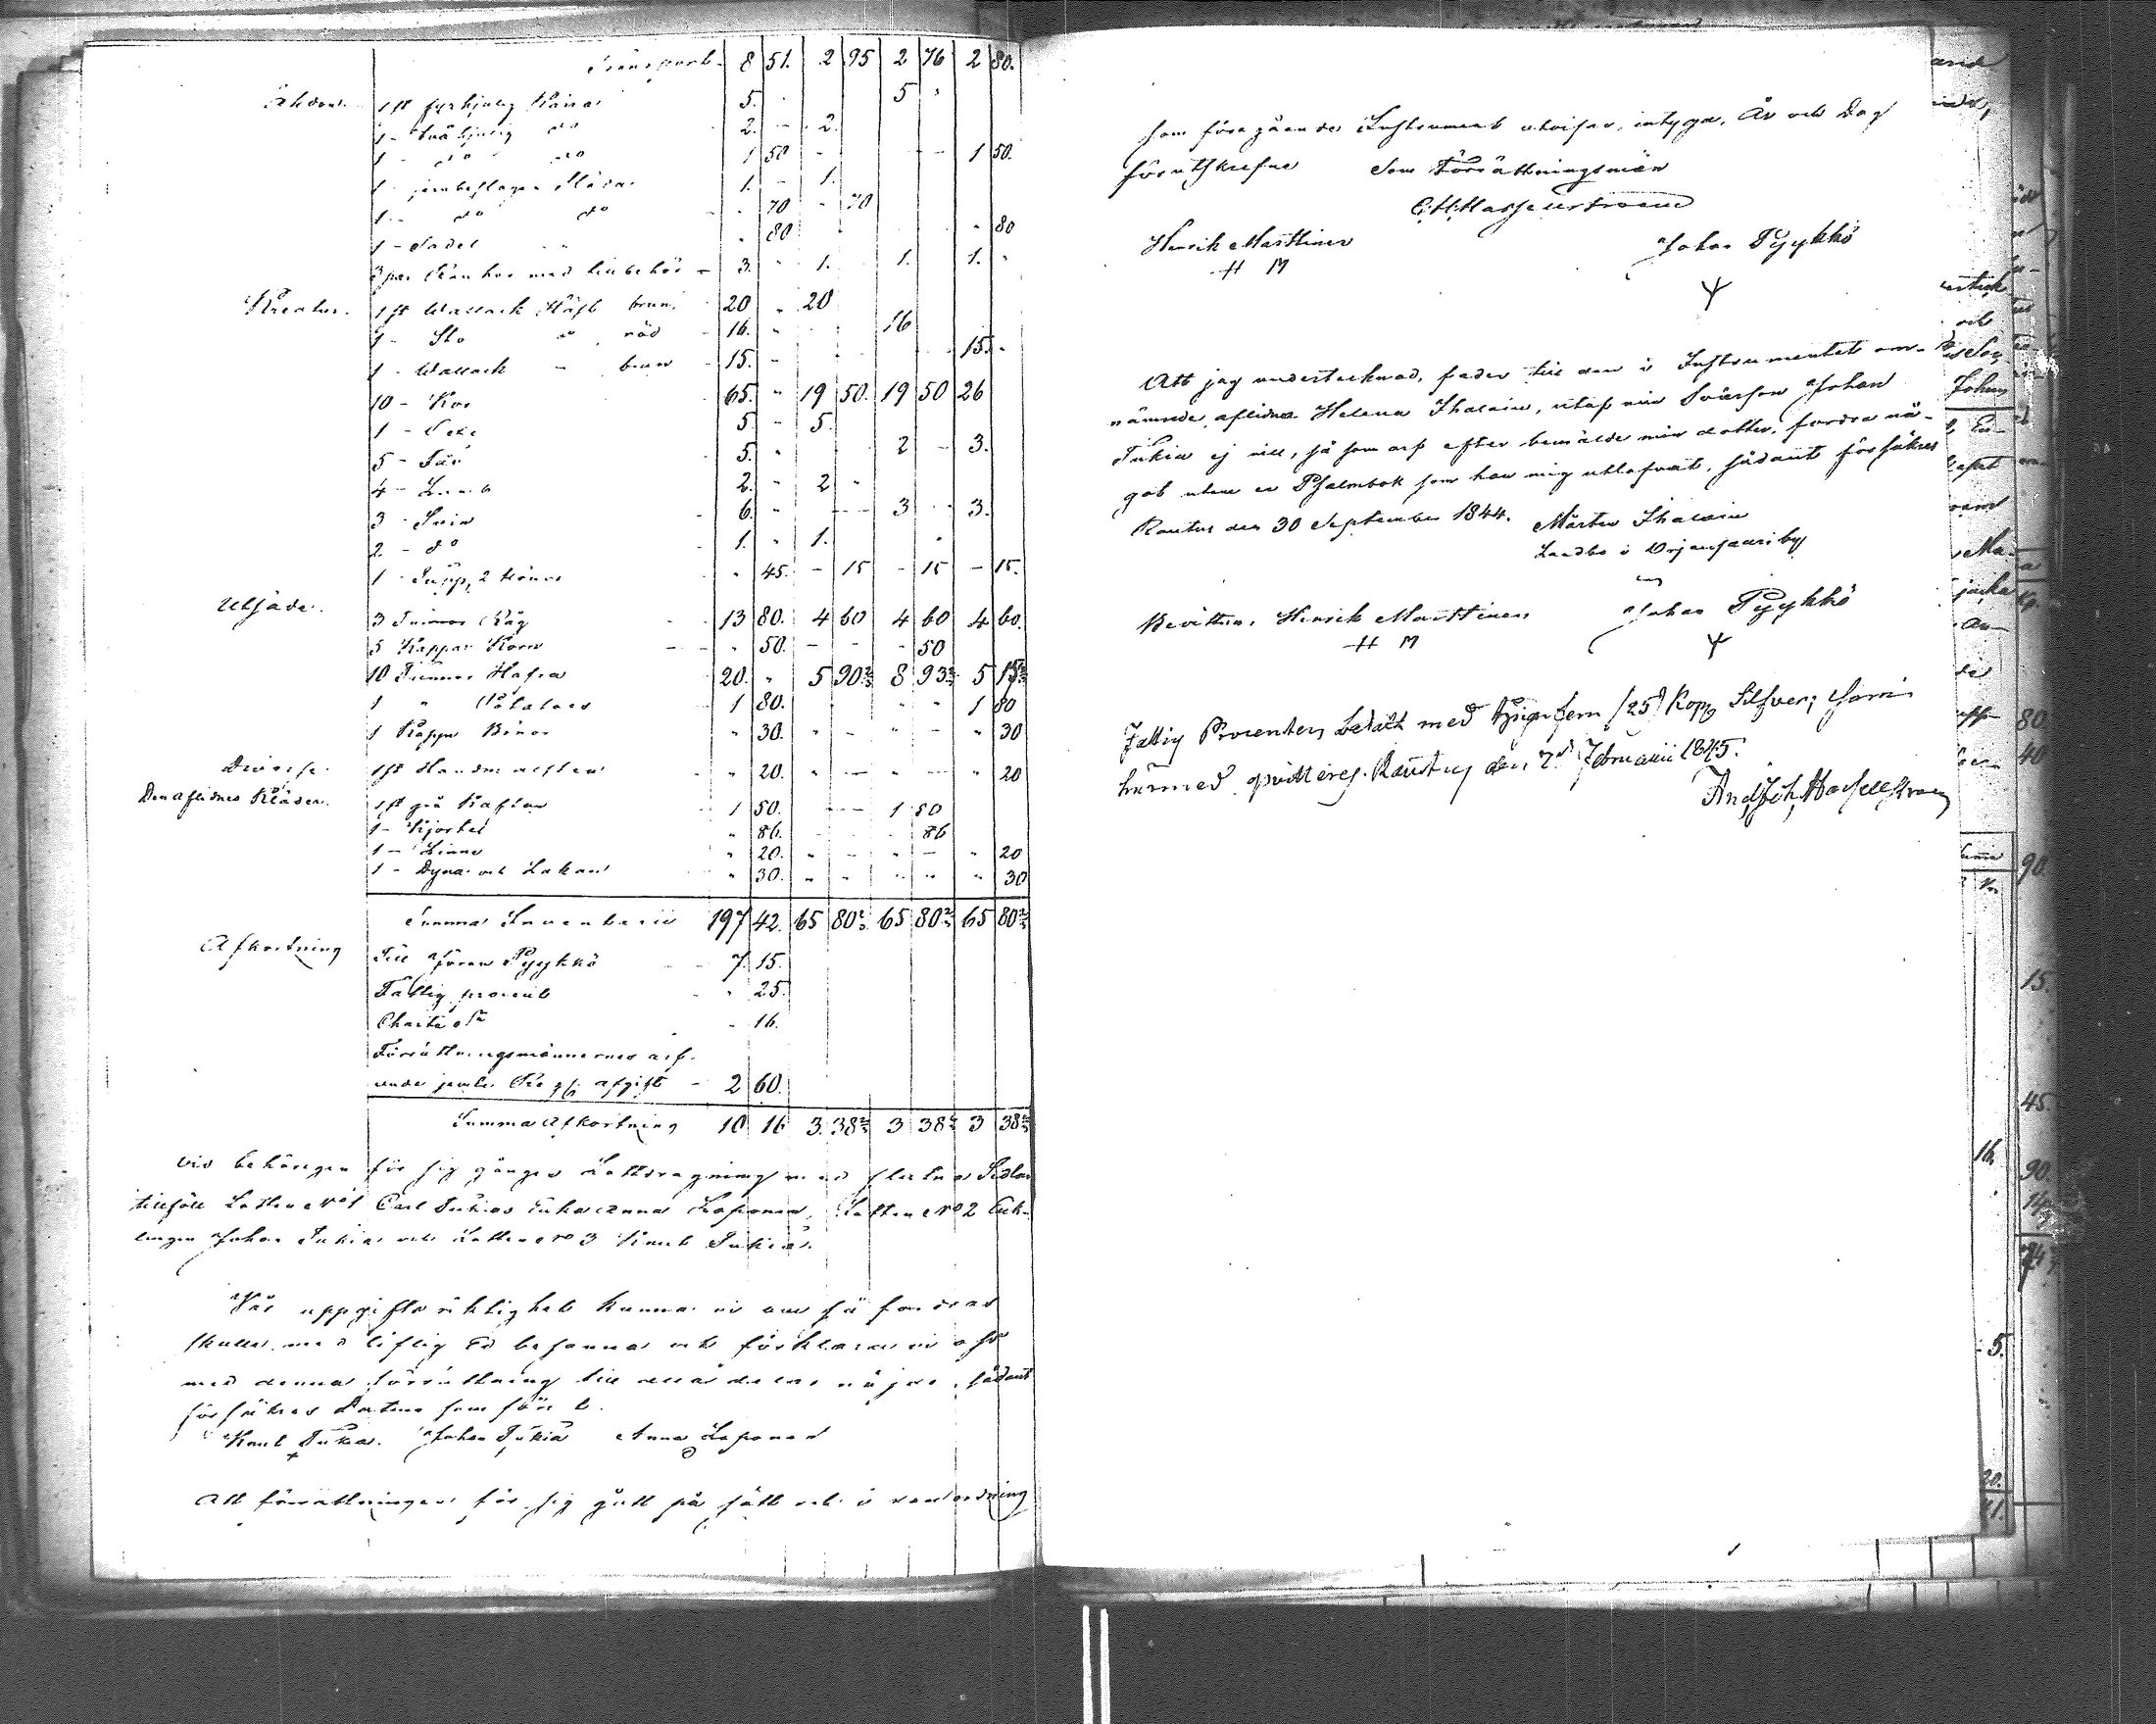 Transport 8 51. 2 95 2 76 2 80.
Åkdon. 1 st fyrhjulig Kärra 5. - 5 -
1 - tvåhjulig do 2. - 2.
1 - do do 1 50 - - - 1 50.
1 - jernbeslagen Släda 1. - 1.
1 - do do - 70 - 70
1 - Sadel - 80 - 80
3 par Rankor med tillbehör - 3. - 1. 1. 1. -
Kreatur. 1 st Wallack Häst brun 20 - 20
1 - Sto " röd - 16. - 16
1 - Wallack - brun - 15. - 15. -
10 - Kor 65. - 19 50. 19 50 26
1 - 5. - 5.
5 - Får 5. - 2 - 3.
4 - Lamb 2. - 2 -
3 - Svin 6. - 3 - 3.
2 - do 1. - 1.
1 - Tupp, 2 hönor - 45. - 15 - 15 - 15.
Utsäde. 3 Tunnor Råg 13 80. 4 60 4 60 4 60.
5 Kappar Korn - 50. - - - 50
10 Tunnor Hafra 20. - 5 90 2/3 8 93 2/3 5 15 2/3
1 " Potatoes 1 80. - - 1 80
1 Kappe Bönor " 30. - - - - " 30
Diverse. 1 st - 20. - - - - " 20
Den aflidnes Kläder. 1 st grå Kaftan 1 50. - - 1 50
1 - Kjortel " 86. - - - 86
1 - Linne " 20. - - - - " 20
1 - Dyna och Lakan " 30. - - - - " 30
Summa Inventarii 197 42. 65 80 2/3 65 80 2/3 65 80 2/3
Afkortning Till Göran Pyykkö - - 7. 15.
Fattig procent - 25.
Charta - 16.
Förrättningsmännernes arf-
vode jemte afgift - 2 60.
Summa Afkortning 10 16 3. 38 2/3 3 38 2/3 3 38 2/3
Vid behörigen för sig gången Lottdragning med slutna Sedlar
tillföll Lotten No 1 Carl Tukias Enka Anna Kaponen, Lotten No 2 Enk-
lingen Johan Tukia och Lotten No 3 Knut Tukia.
Vår uppgifts riktighet kunna vi om så fordras
skulle med liflig Ed besanna och förklara vi oss
med denna förrättning till alla delar nöjde, sådant
försäkras Datum som förr
Knut Tukia. Johan Tukia Anna Kaponen
Att förrättningen för sig gått på sätt och i den ordning
som föregående Instrument utvisar, intyga. År och Dag
förutskrefne Som Förrättningsmän
Henrik Marttinen Johan Pyykkö
H M
Att jag undertecknad, fader till den i Instrumentet om-
nämnde aflidna Helena Ihalain, utaf min Svärson Johan
Tukia ej vill, så som arf efter bemälde min dotter, fordra nå-
got utom en Psalmbok som han mig utlofvat, sådant försäkras
Rautus den 30 September 1844. Mårten Ihalain
Landbo i Orjansaari by
Bevittna, Henrik Marttinen Johan Pyykkö
H M
Fattig Procenten betalt med tjugufem /25/ Kop Silfver; som
härmed qvitteres. Rautus den 7de Februarii 1845.
And Joh Hasselstroem